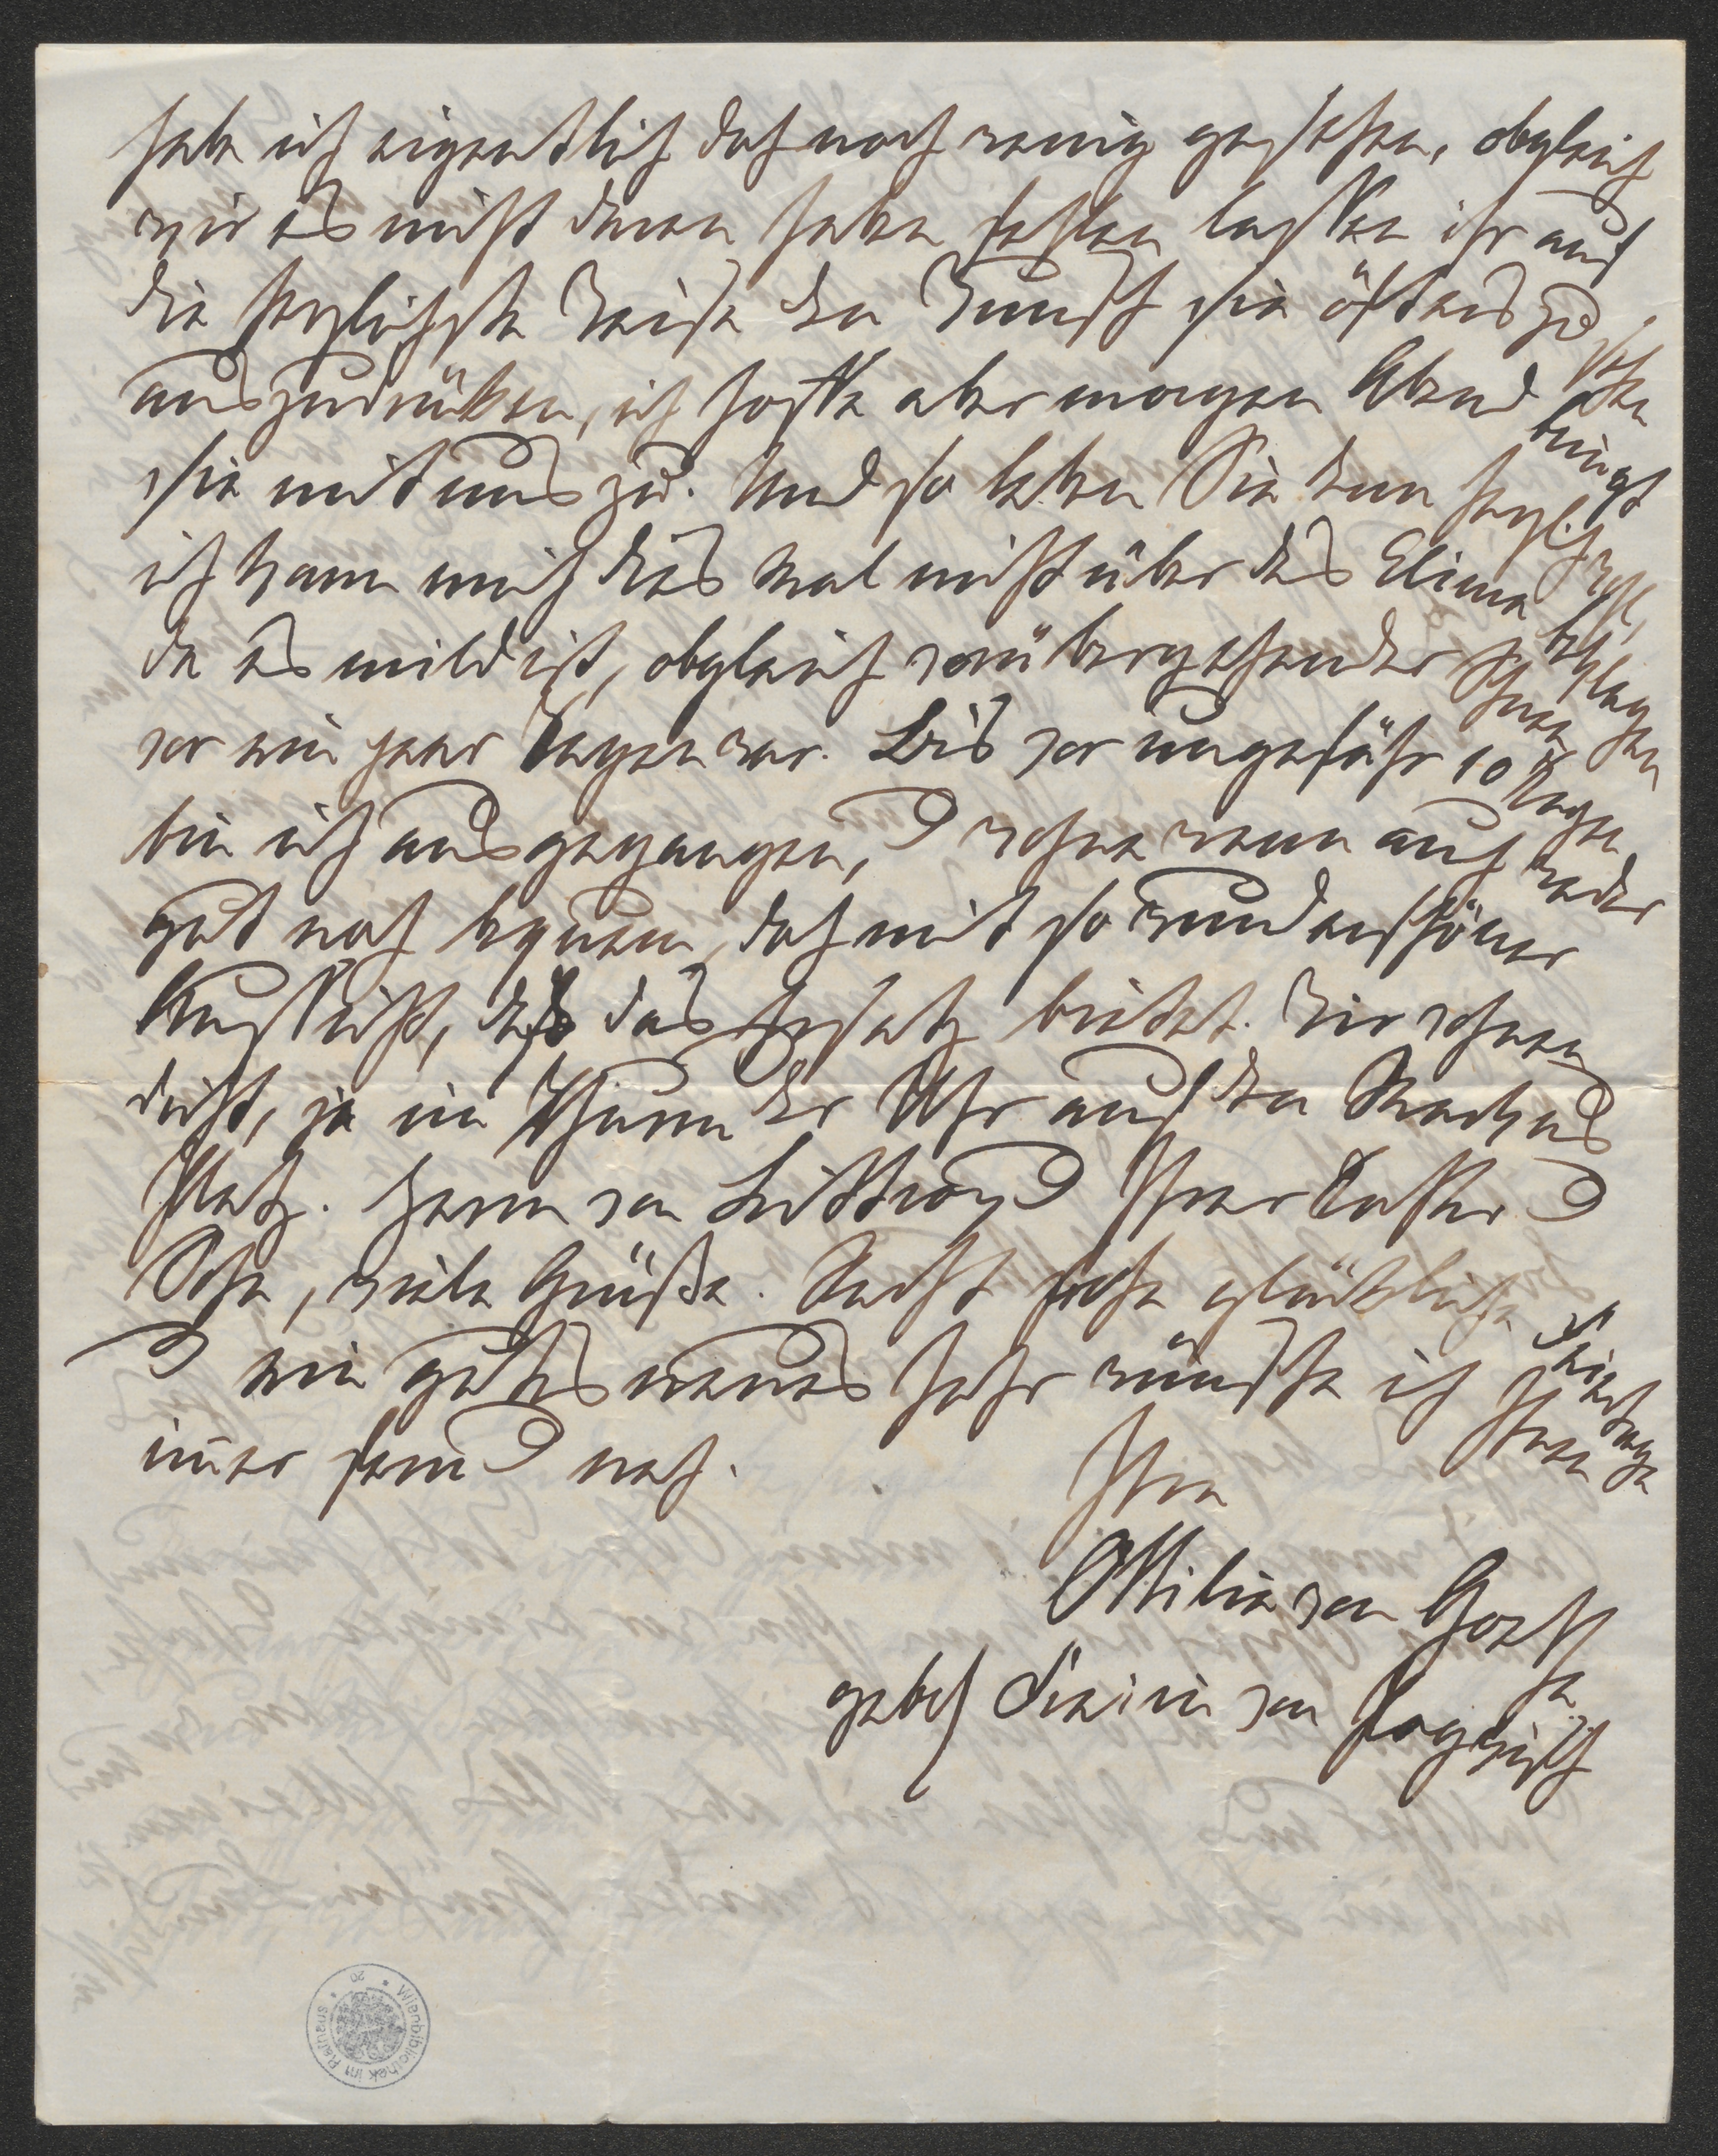 habe ich eigentlich doch noch wenig gesehen, obgleich
wir es nicht daran haben fehlen lassen ihr auf
die herzlichste Weise den Wunsch sie öfters zu sehen
auszudrücken, ich hoffe aber morgen Abend bringt
sie mit uns zu. Und so leben Sie denn herzlich wohl,
ich kann mich dies Mal nicht über das Clima beklagen
da es mild ist, obgleich vorübergehender Schnee
vor ein paar Tagen war. Bis vor ungefähr 10 Tagen
bin ich ausgegangen, u wohne wenn auch weder
gut noch bequem, doch mit so wunderschöner
Aussicht, daß das Ersatz bietet. Wir wohnen
dicht, ja im Thurm der Uhr auf den Markus
Platz. Herrn von Littrow u Ihrer Tochter u
Sohn, viele Grüße. Recht frohe glückliche Feiertage
u ein gutes neues Jahr wünsche ich Ihnen
imer freud noch.
Ihre
Ottilie von Goethe
gebohr Freiin von Pogwisch
Wienbibliothek im Rathaus